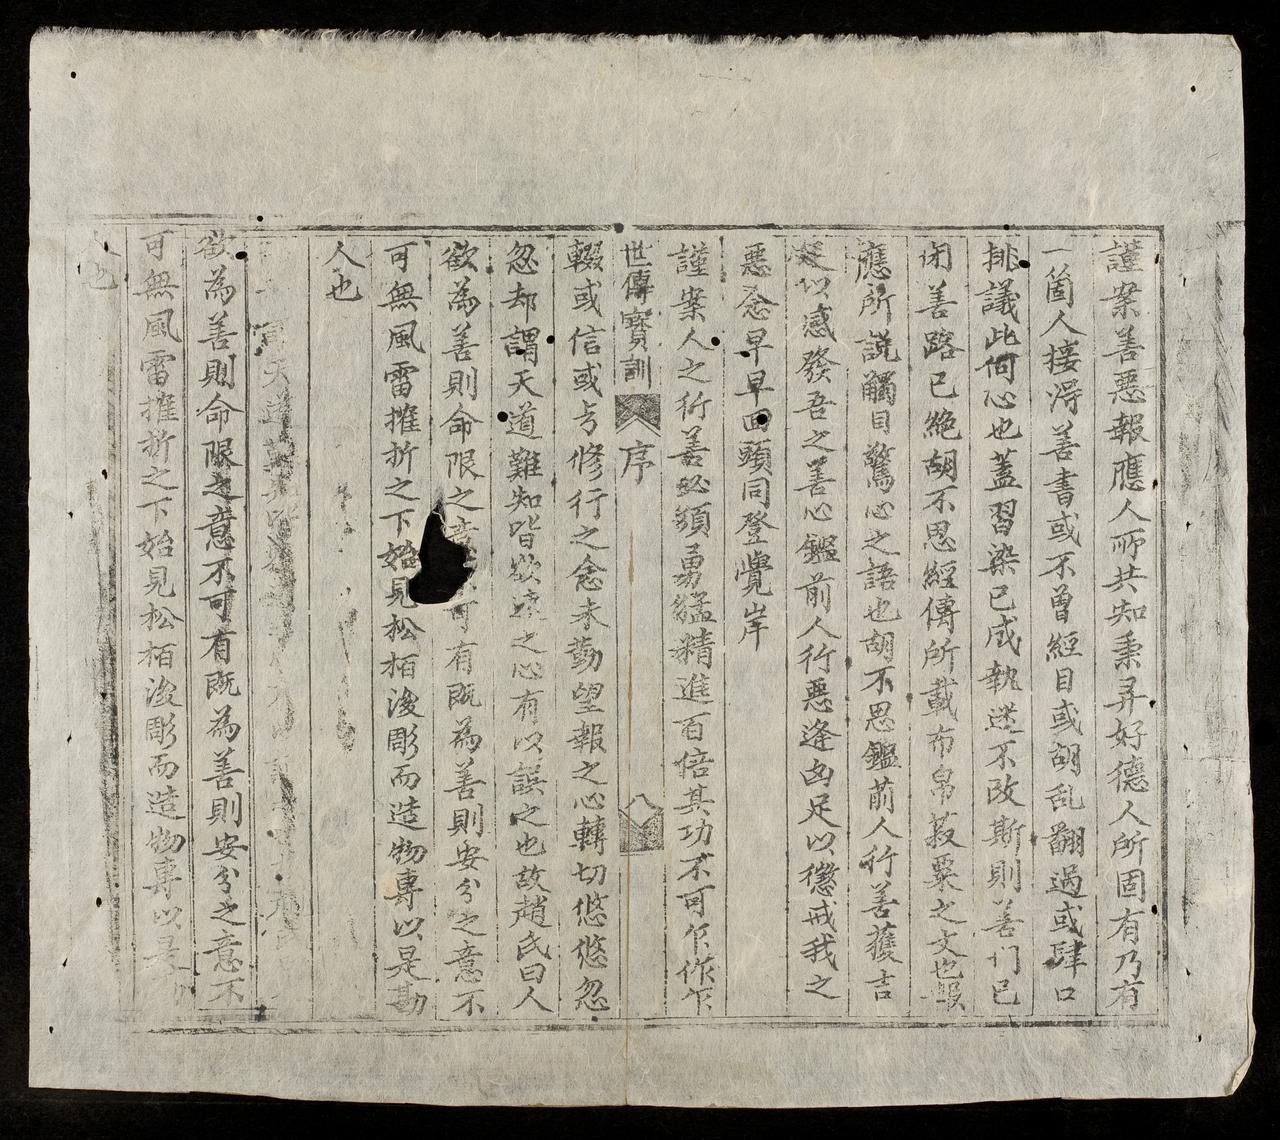 謹案善惡報應人所共知秉彛好德人所固有乃有
一箇人接淂善書或不曾經目或胡乱翻過或肆口
排議此何心也蓋習染已成執迷不改斯則善门已
闭善路已絶胡不思經傳所載布帛菽粟之文也報
應所說觸目驚心之語也胡不思鑑前人行善獲吉
足以感發吾之善心鑑前人行惡逢凶足以懲戒我之
惡念早早回頭同登覺岸
謹案人之行善必須勇猛精進百倍其功不可乍作乍
世傳寶訓 序 八
輟或信或𭃄修行之念未勤望報之心轉切悠悠忽
忽却謂天道難知皆欲速之心有以誤之也故趙氏曰人
欲為善則命限之意 可有既為善則安分之意不
可無風雷摧折之下始見松栢後彫而造物專以是勘
人也
謂天道難知皆
欲為善則命限之意不可有既為善則安分之意不
可無風雷摧折之下始見松栢後彫而造物專以是勘
人也